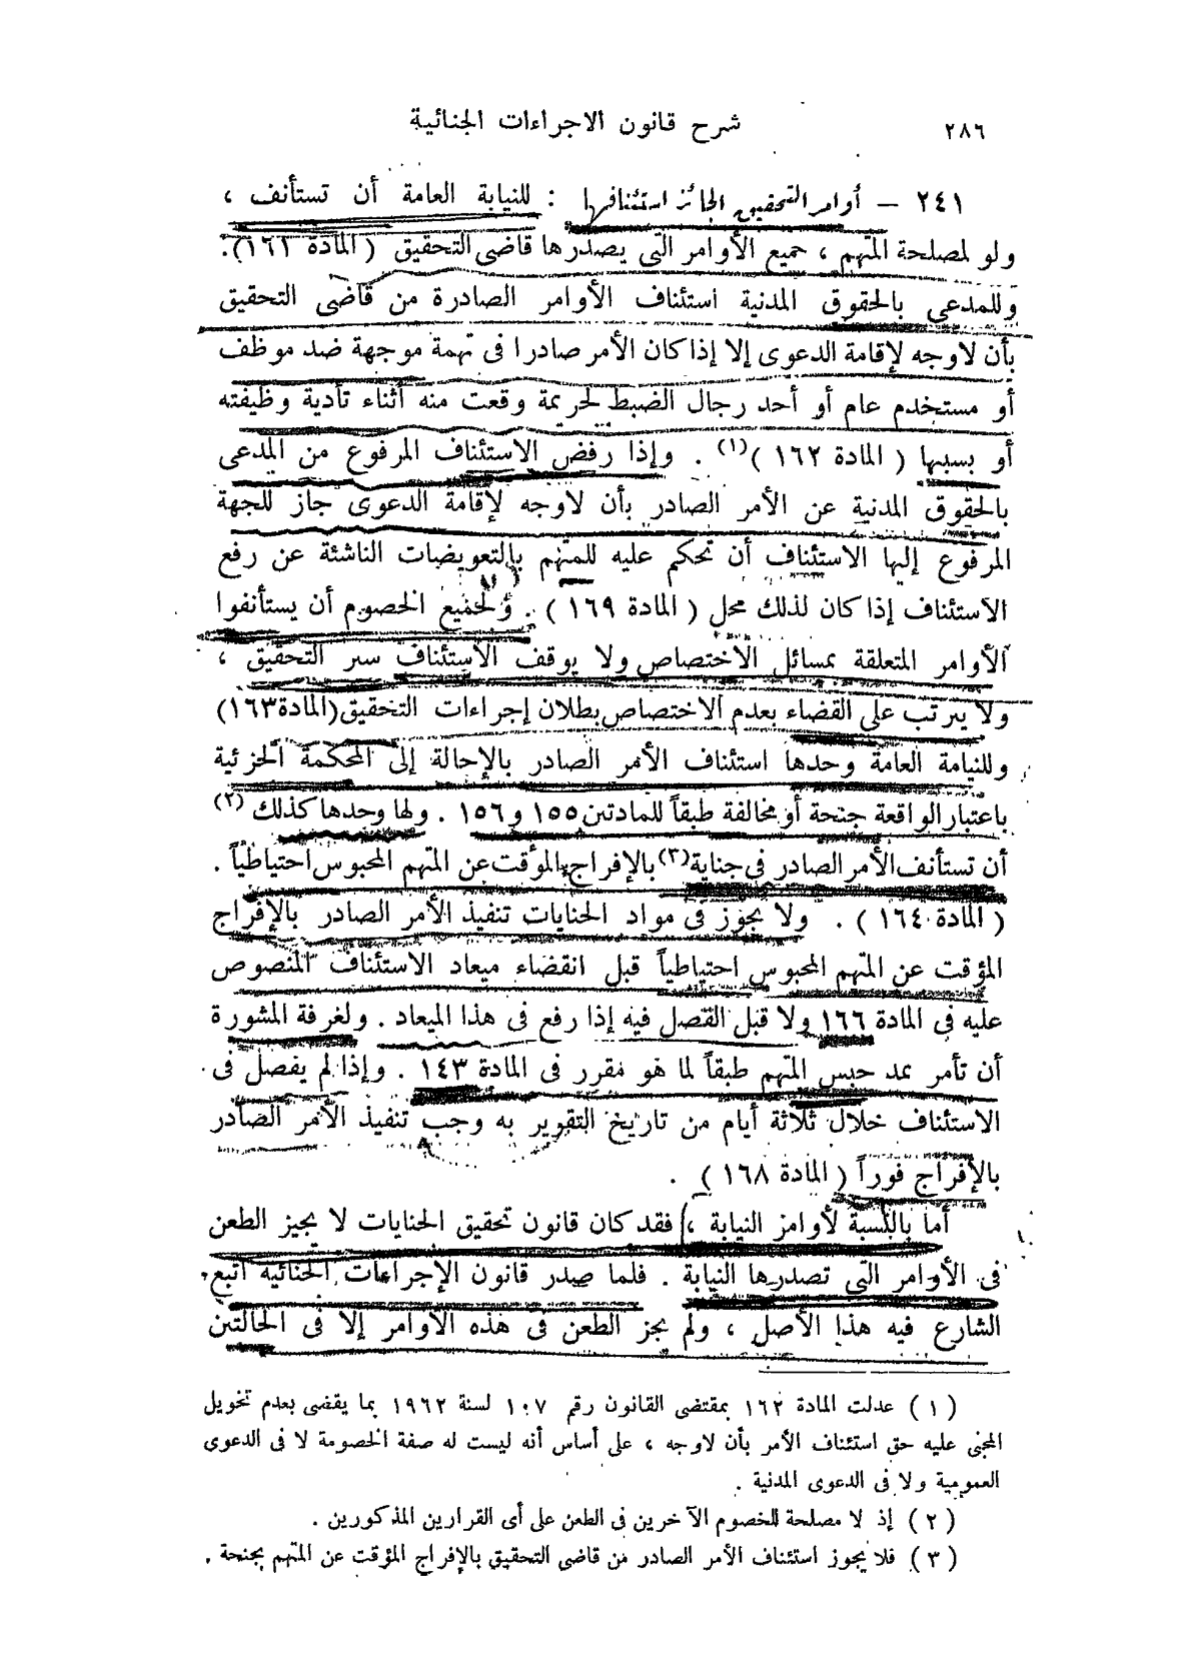 ٢٨٦
شرح قانون الاجراءات الجنائية
٢٤١ — أوامر التحقيق الجائز استئنافها : للنيابة العامة أن تستأنف ،
ولو لمصلحة المتهم ، جميع الأوامر التى يصدرها قاضى التحقيق ( المادة ١٦١).
وللمدعى بالحقوق المدنية استئناف الأوامر الصادرة من قاضى التحقيق
بأن لاوجه لإقامة الدعوى إلا إذا كان الأمر صادرا فى تهمة موجهة ضد موظف
أو مستخدم عام أو أحد رجال الضبط لجريمة وقعت منه أثناء تأدية وظيفته
أو بسببها ( المادة ١٦٢ )(١) . وإذا رفض الاستئناف المرفوع من المدعى
بالحقوق المدنية عن الأمر الصادر بأن لاوجه لإقامة الدعوى جاز للجهة
المرفوع إليها الاستئناف أن تحكم عليه للمتهم بالتعويضات الناشئة عن رفع
الاستئناف إذا كان لذلك محل ( المادة ١٦٩ ) . ولجميع الخصوم أن يستأنفوا
الأوامر المتعلقة بمسائل الاختصاص ولا يوقف الاستئناف سير التحقيق ،
ولا يترتب على القضاء بعدم الاختصاص بطلان إجراءات التحقيق (المادة ١٦٣)
وللنيابة العامة وحدها استئناف الأمر الصادر بالإحالة إلى المحكمة الجزئية
باعتبار الواقعة جنحة أو مخالفة طبقاً للمادتين ١٥٥ و ١٥٦ . ولها وحدها كذلك (٢)
أن تستأنف الأمر الصادر فى جناية(٣) بالإفراج المؤقت عن المتهم المحبوس احتياطياً .
( المادة ١٦٤ ) . ولا يجوز فى مواد الجنايات تنفيذ الأمر الصادر بالإفراج
المؤقت عن المتهم المحبوس احتياطياً قبل انقضاء ميعاد الاستئناف المنصوص
عليه فى المادة ١٦٦ ولا قبل الفصل فيه إذا رفع فى هذا الميعاد . ولغرفة المشورة
أن تأمر بمد حبس المتهم طبقاً لما هو مقرر فى المادة ١٤٣ . وإذا لم يفصل فى
الاستئناف خلال ثلاثة أيام من تاريخ التقرير به وجب تنفيذ الأمر الصادر
بالإفراج فوراً ( المادة ١٦٨ ) .
أما بالنسبة لأوامر النيابة ، فقد كان قانون تحقيق الجنايات لا يجيز الطعن
فى الأوامر التى تصدرها النيابة . فلما صدر قانون الإجراءات الجنائية اتبع
الشارع فيه هذا الأصل ، ولم يجز الطعن فى هذه الأوامر إلا فى الحالتين
( ١ ) عدلت المادة ١٦٢ بمقتضى القانون رقم ١٠٧ لسنة ١٩٦٢ بما يقضى بعدم تخويل
المجنى عليه حق استئناف الأمر بأن لاوجه ، على أساس أنه ليست له صفة الخصومة لا فى الدعوى
العمومية ولا فى الدعوى المدنية .
( ٢ ) إذ لا مصلحة للخصوم الآخرين فى الطعن على أى القرارين المذكورين .
( ٣ ) فلا يجوز استئناف الأمر الصادر من قاضى التحقيق بالإفراج المؤقت عن المتهم بجنحة .